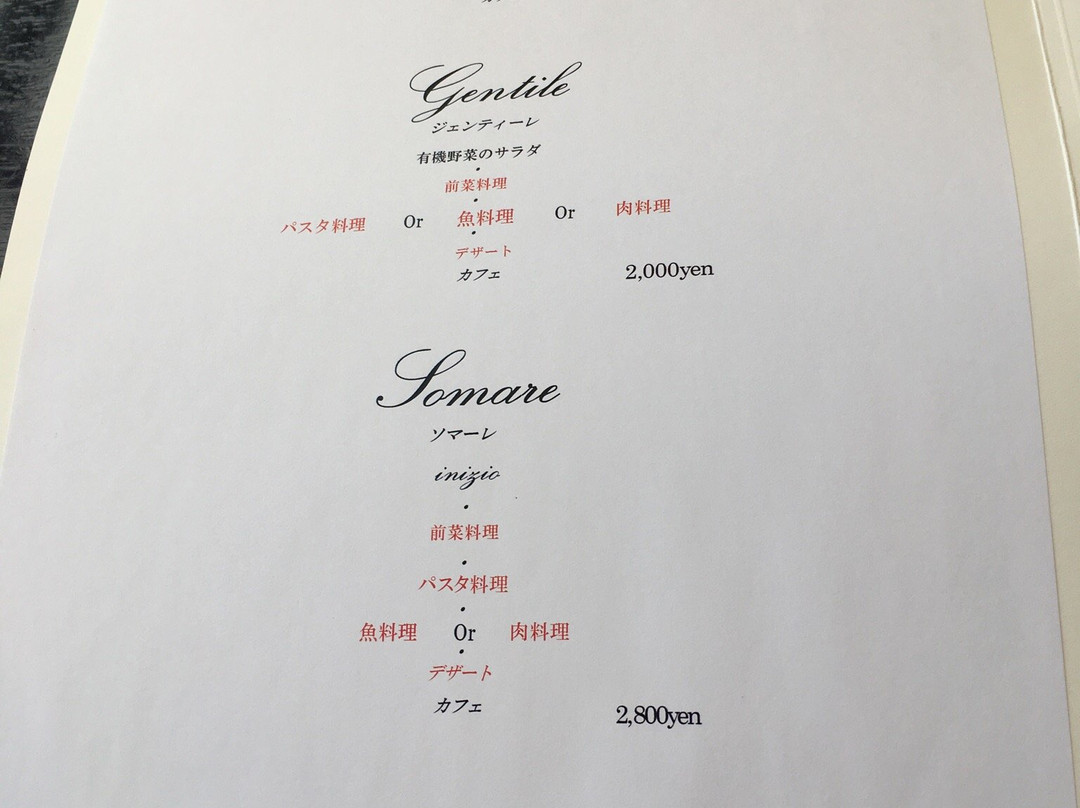 Gentile
ジェンティーレ
有機野菜のサラダ
・
前菜料理
・
パスタ料理 Or 魚料理 Or 肉料理
・
デザート
カフェ 2,000yen
Somare
ソマーレ
inizio
・
前菜料理
・
パスタ料理
・
魚料理 Or 肉料理
・
デザート
カフェ 2,800yen